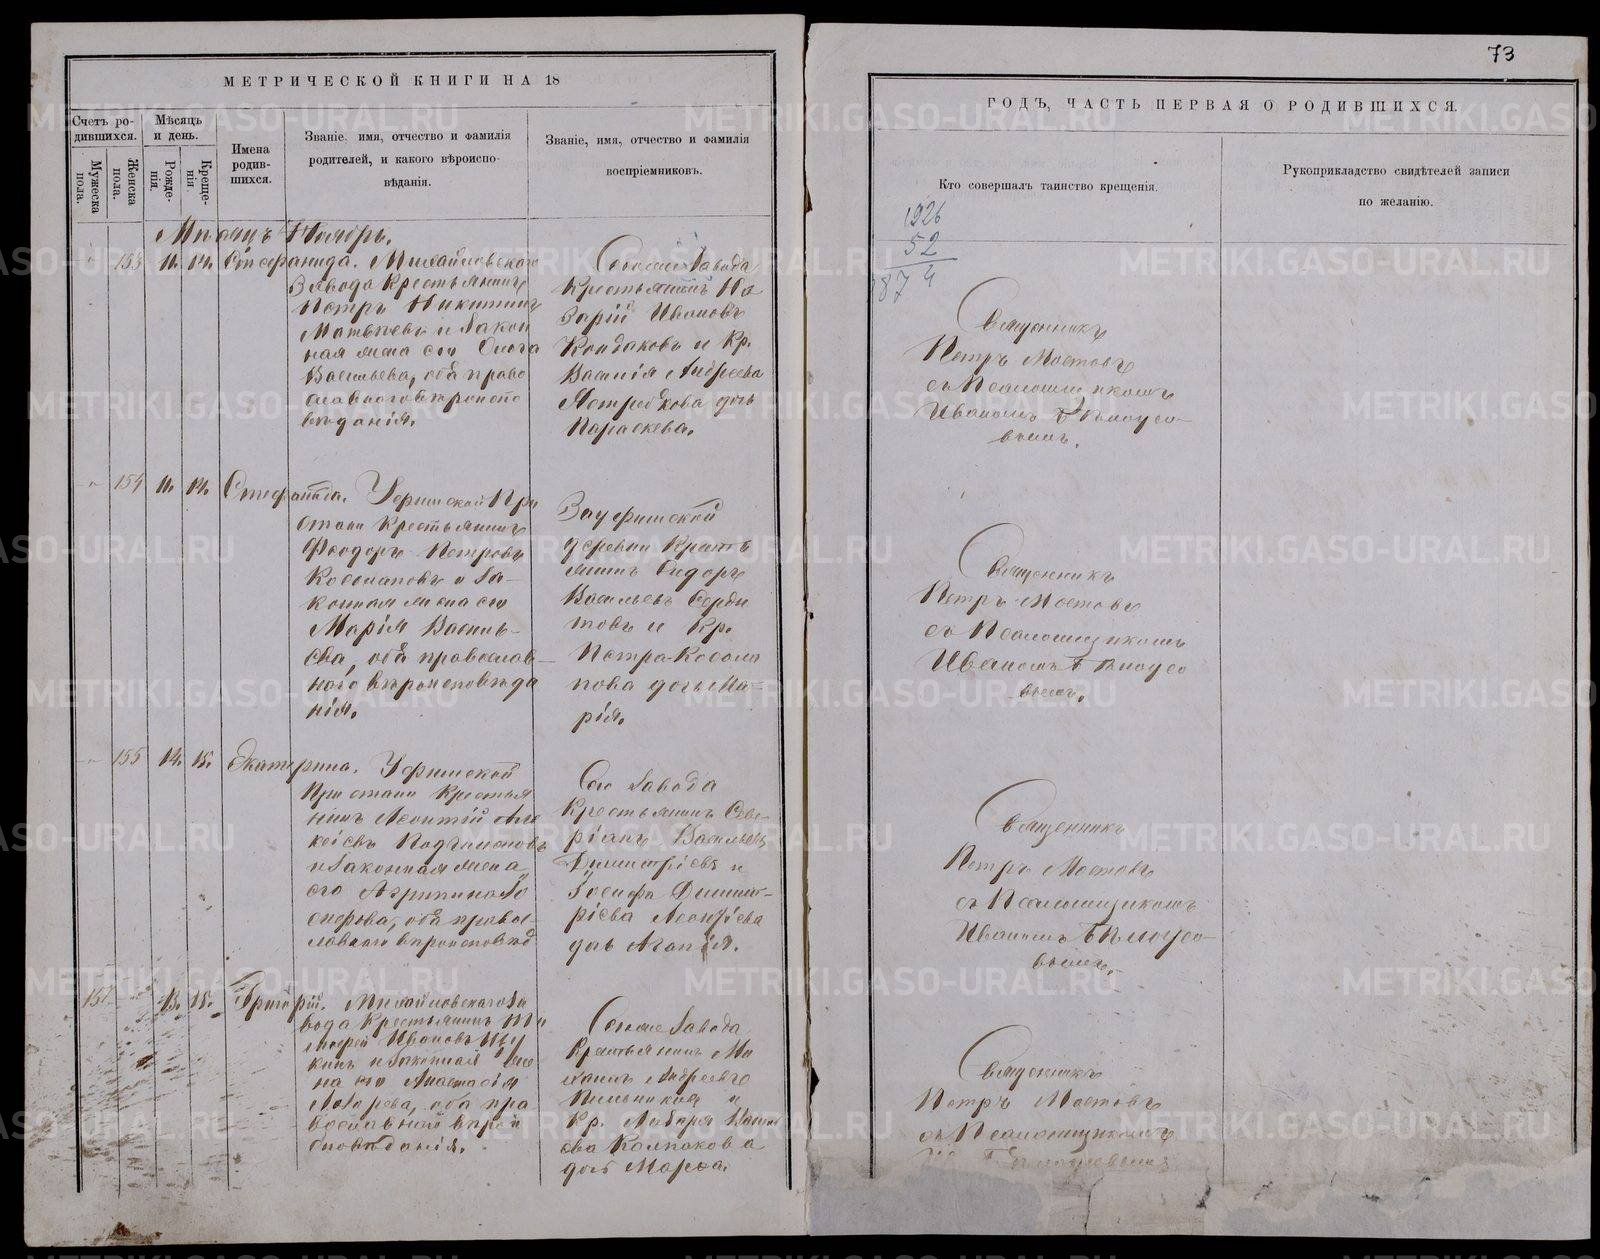 73
МЕТРИЧЕСКОЙ КНИГИ НА 18
ГОДЪ, ЧАСТЬ ПЕРВАЯ О РОДИВШИХСЯ.
Счетъ ро-
дившихся.
Мужеска
пола.
Женска
пола.
Мѣсяцъ
и день.
Рожде-
нія.
Креще-
нія.
Имена
родив-
шихся.
Званіе, имя, отчество и фамилія
родителей, и какого вѣроиспо-
вѣданія.
Званіе, имя, отчество и фамилія
воспріемниковъ.
Кто совершалъ таинство крещенія.
Рукоприкладство свидѣтелей записи
по желанію.
1926
52
1874
Мѣсяцъ Ноябрь.
153 11. 14. Стефанида. Михайловскаго
Завода Крестьянинъ
Петръ Никитинъ
Матвѣевъ и Закон
ная жена его Ольга
Васильева, оба право
славнаго вѣроиспо
вѣданія.
Завода
Крестьянинъ На
зарій Ивановъ
Кондаковъ и Кр.
Василія Андреева
Ястребкова дочь
Параскева.
Священникъ
Петръ Мостовъ
съ Псаломщикомъ
Иваномъ Бѣлоусо-
вымъ.
154 11. 14. Стефанида. Уфимской При
стани Крестьянинъ
Феодоръ Петровъ
Косолаповъ и За-
конная жена его
Марія Василь-
ева, оба православ-
наго вѣроисповѣда
нія.
Зауфимской
деревни Кресть
янинъ Сидоръ
Васильевъ Серди
товъ и Кр.
Петра Косола
пова дочь Ма-
рія.
Священникъ
Петръ Мостовъ
съ Псаломщикомъ
Иваномъ Бѣлоусо
вымъ.
155 14. 15. Екатерина. Уфимской
Пристани Крестья
нинъ Леонтій Але
ксіевъ Подчиненовъ
и Законная жена
его Агрипина Іо
сифова, оба правос-
лавнаго вѣроисповѣд
Сего Завода
Крестьянинъ Севе-
ріанъ Васильевъ
Димитріевъ и
Іосифа Димит-
ріева Леонтіева
дочь Агапія.
Священникъ
Петръ Мостовъ
съ Псаломщикомъ
Иваномъ Бѣлоусо-
вымъ.
157. 13. 15. Григорій. Михайловскаго За
вода Крестьянинъ Ти
мофей Ивановъ Щу
кинъ и Законная же
на его Анастасія
Лазарева, оба пра
вославной вѣрои
сповѣданія.
Завода
Крестьянинъ Ми
хаилъ Андреевъ
Пильниковъ и
Кр. Лазаря Васил
ева Колпакова
дочь Марѳа.
Священникъ
Петръ Мостовъ
съ Псаломщикомъ
Бѣлоусовымъ
METRIKI.GASO-URAL.RU